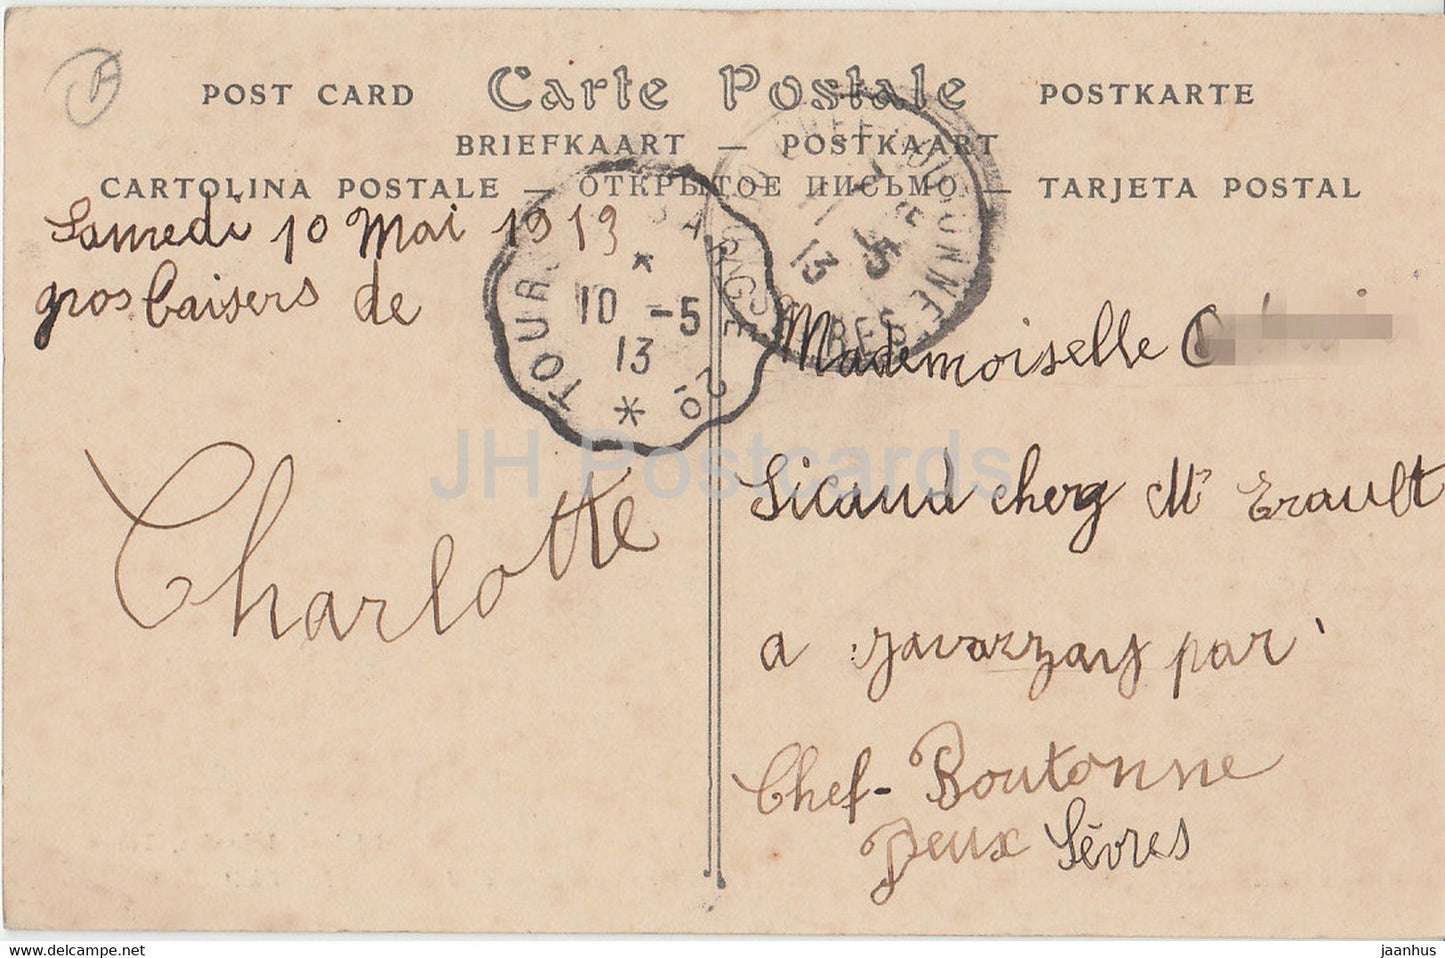 POST CARD Carte Postale POSTKARTE
BRIEFKAART — POSTKAART
CARTOLINA POSTALE — ОТКРЫТОЕ ПИСЬМО — TARJETA POSTAL
Samedi 10 Mai 1913
gros baisers de
Charlotte
TOUR
10 -5
13
2º
CHEF-BOUTONNE
11 -5
13
Mademoiselle
Sicaud cherg Mr Erault
a javarzay par
Chef-Boutonne
Deux Sèvres
JH Postcards
www.delcampe.net
jaanhus